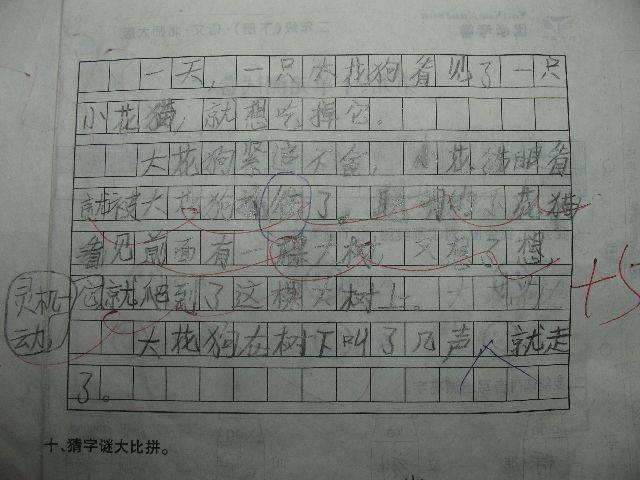 二年级(下册)·语文·北师大版
一天,一只大花狗看见了一只
小花猫,就想吃掉它。
大花狗紧追不舍,小花猫眼看
就被大花狗抓住了。聪明的小花猫
看见前面有一棵大树,又想了想,
灵机一动,
它就爬到了这棵大树上。大花狗
大花狗在树下叫了几声,就走
了。
+5
十、猜字谜大比拼。